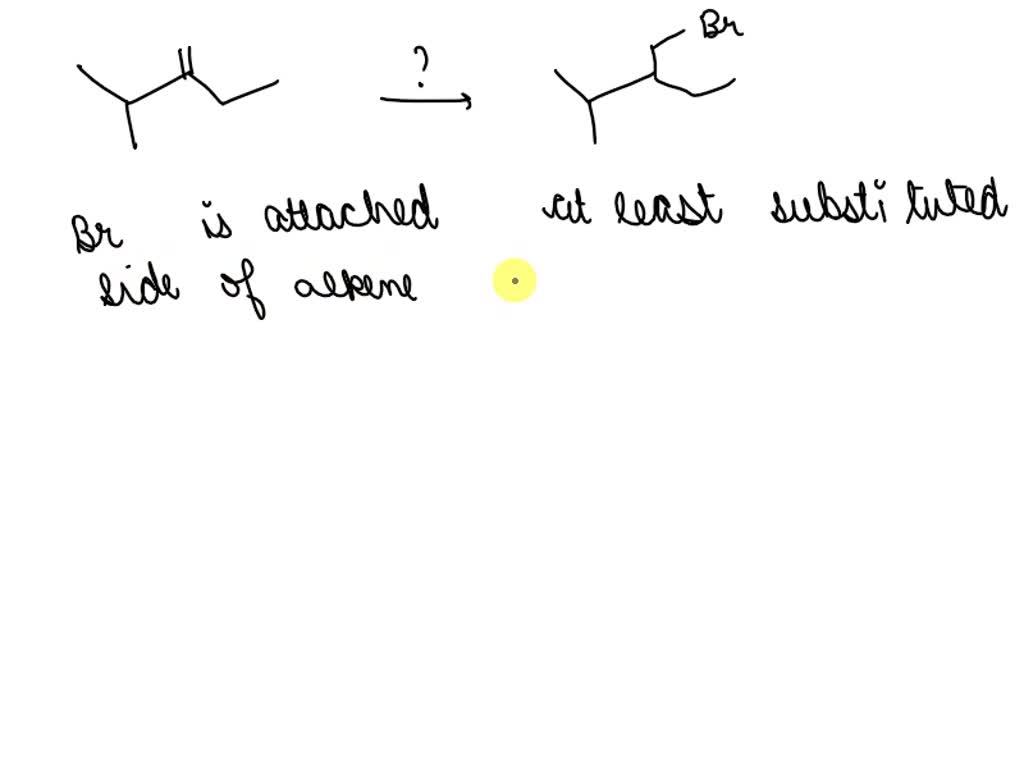 Br
?
Br is attached at least substituted
side of alkene